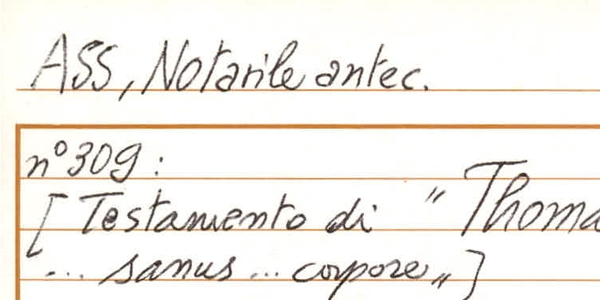 ASS, Notarile antec.
n° 309:
[Testamento di "Thoma
... sanus ... corpore"]